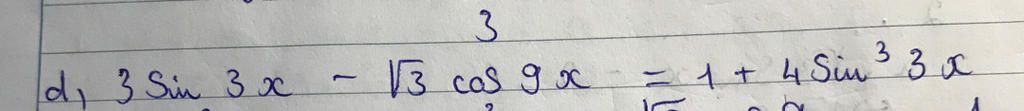 3
d, 3 Sin 3x - √3 cos 9x = 1 + 4 Sin³ 3x